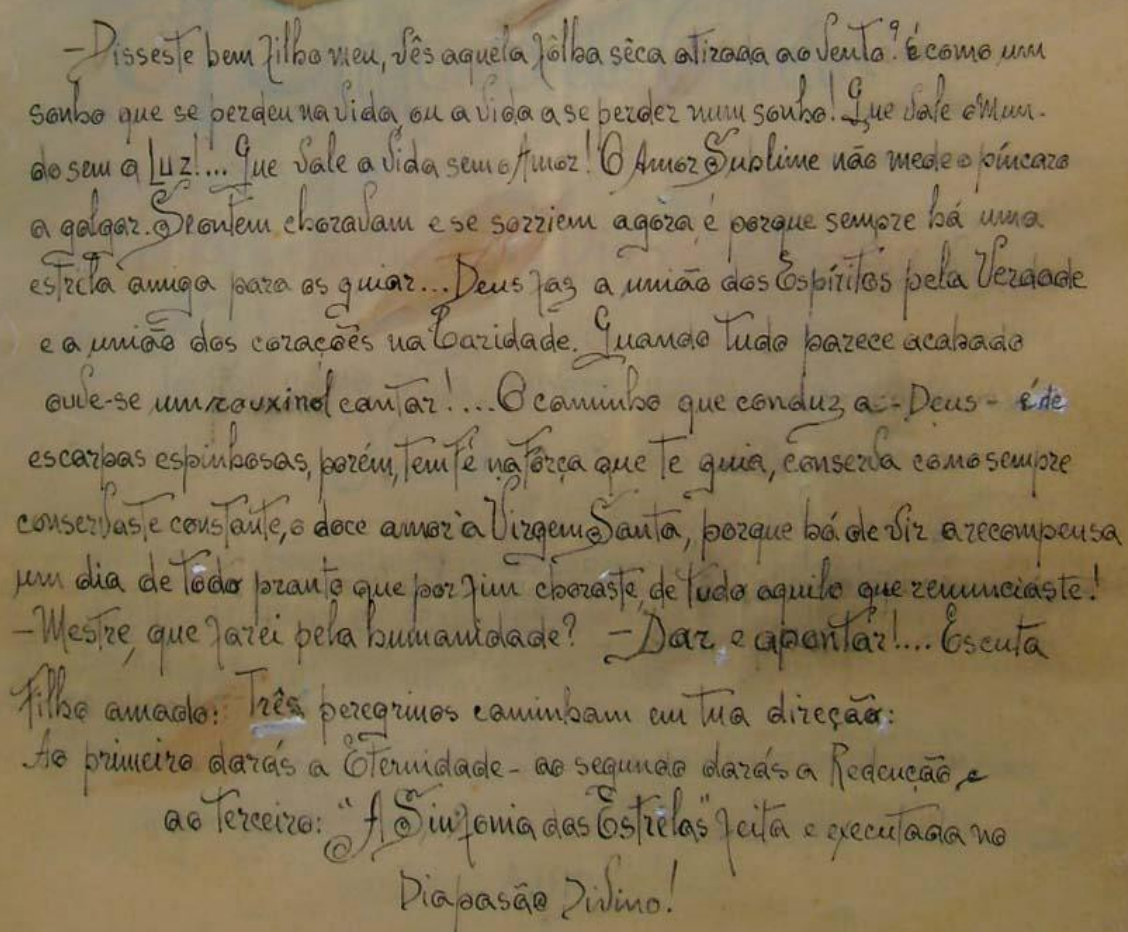 -Disseste bem filho meu, vês aquela fôlha sêca atirada ao vento? É como um
sonho que se perdeu na vida, ou a vida a se perder num sonho! Que vale o Mun-
do sem a Luz!... Que vale a vida sem o Amor! O Amor Sublime não mede o píncaro
a galgar. Se ontem choravam e se sorriem agora, é porque sempre há uma
estrela amiga para os guiar... Deus faz a união dos Espíritos pela Verdade
e a união dos corações na Caridade. Quando tudo parece acabado
ouve-se um rouxinol cantar!.... O caminho que conduz a - Deus - é de
escarpas espinhosas, porém, tem fé na fôrça que te guia, conserva como sempre
conservaste constante, o doce amor a Virgem Santa, porque há de vir a recompensa
um dia de todo pranto que por fim choraste, de tudo aquilo que renunciaste!
-Mestre, que farei pela humanidade? -Dar, e apontar!.... Escuta
Filho amado: Três peregrinos caminham em tua direção:
Ao primeiro darás a Eternidade - ao segundo darás a Redenção, e
ao terceiro: "A Sinfonia das Estrelas" feita e executada no
Diapasão Divino!